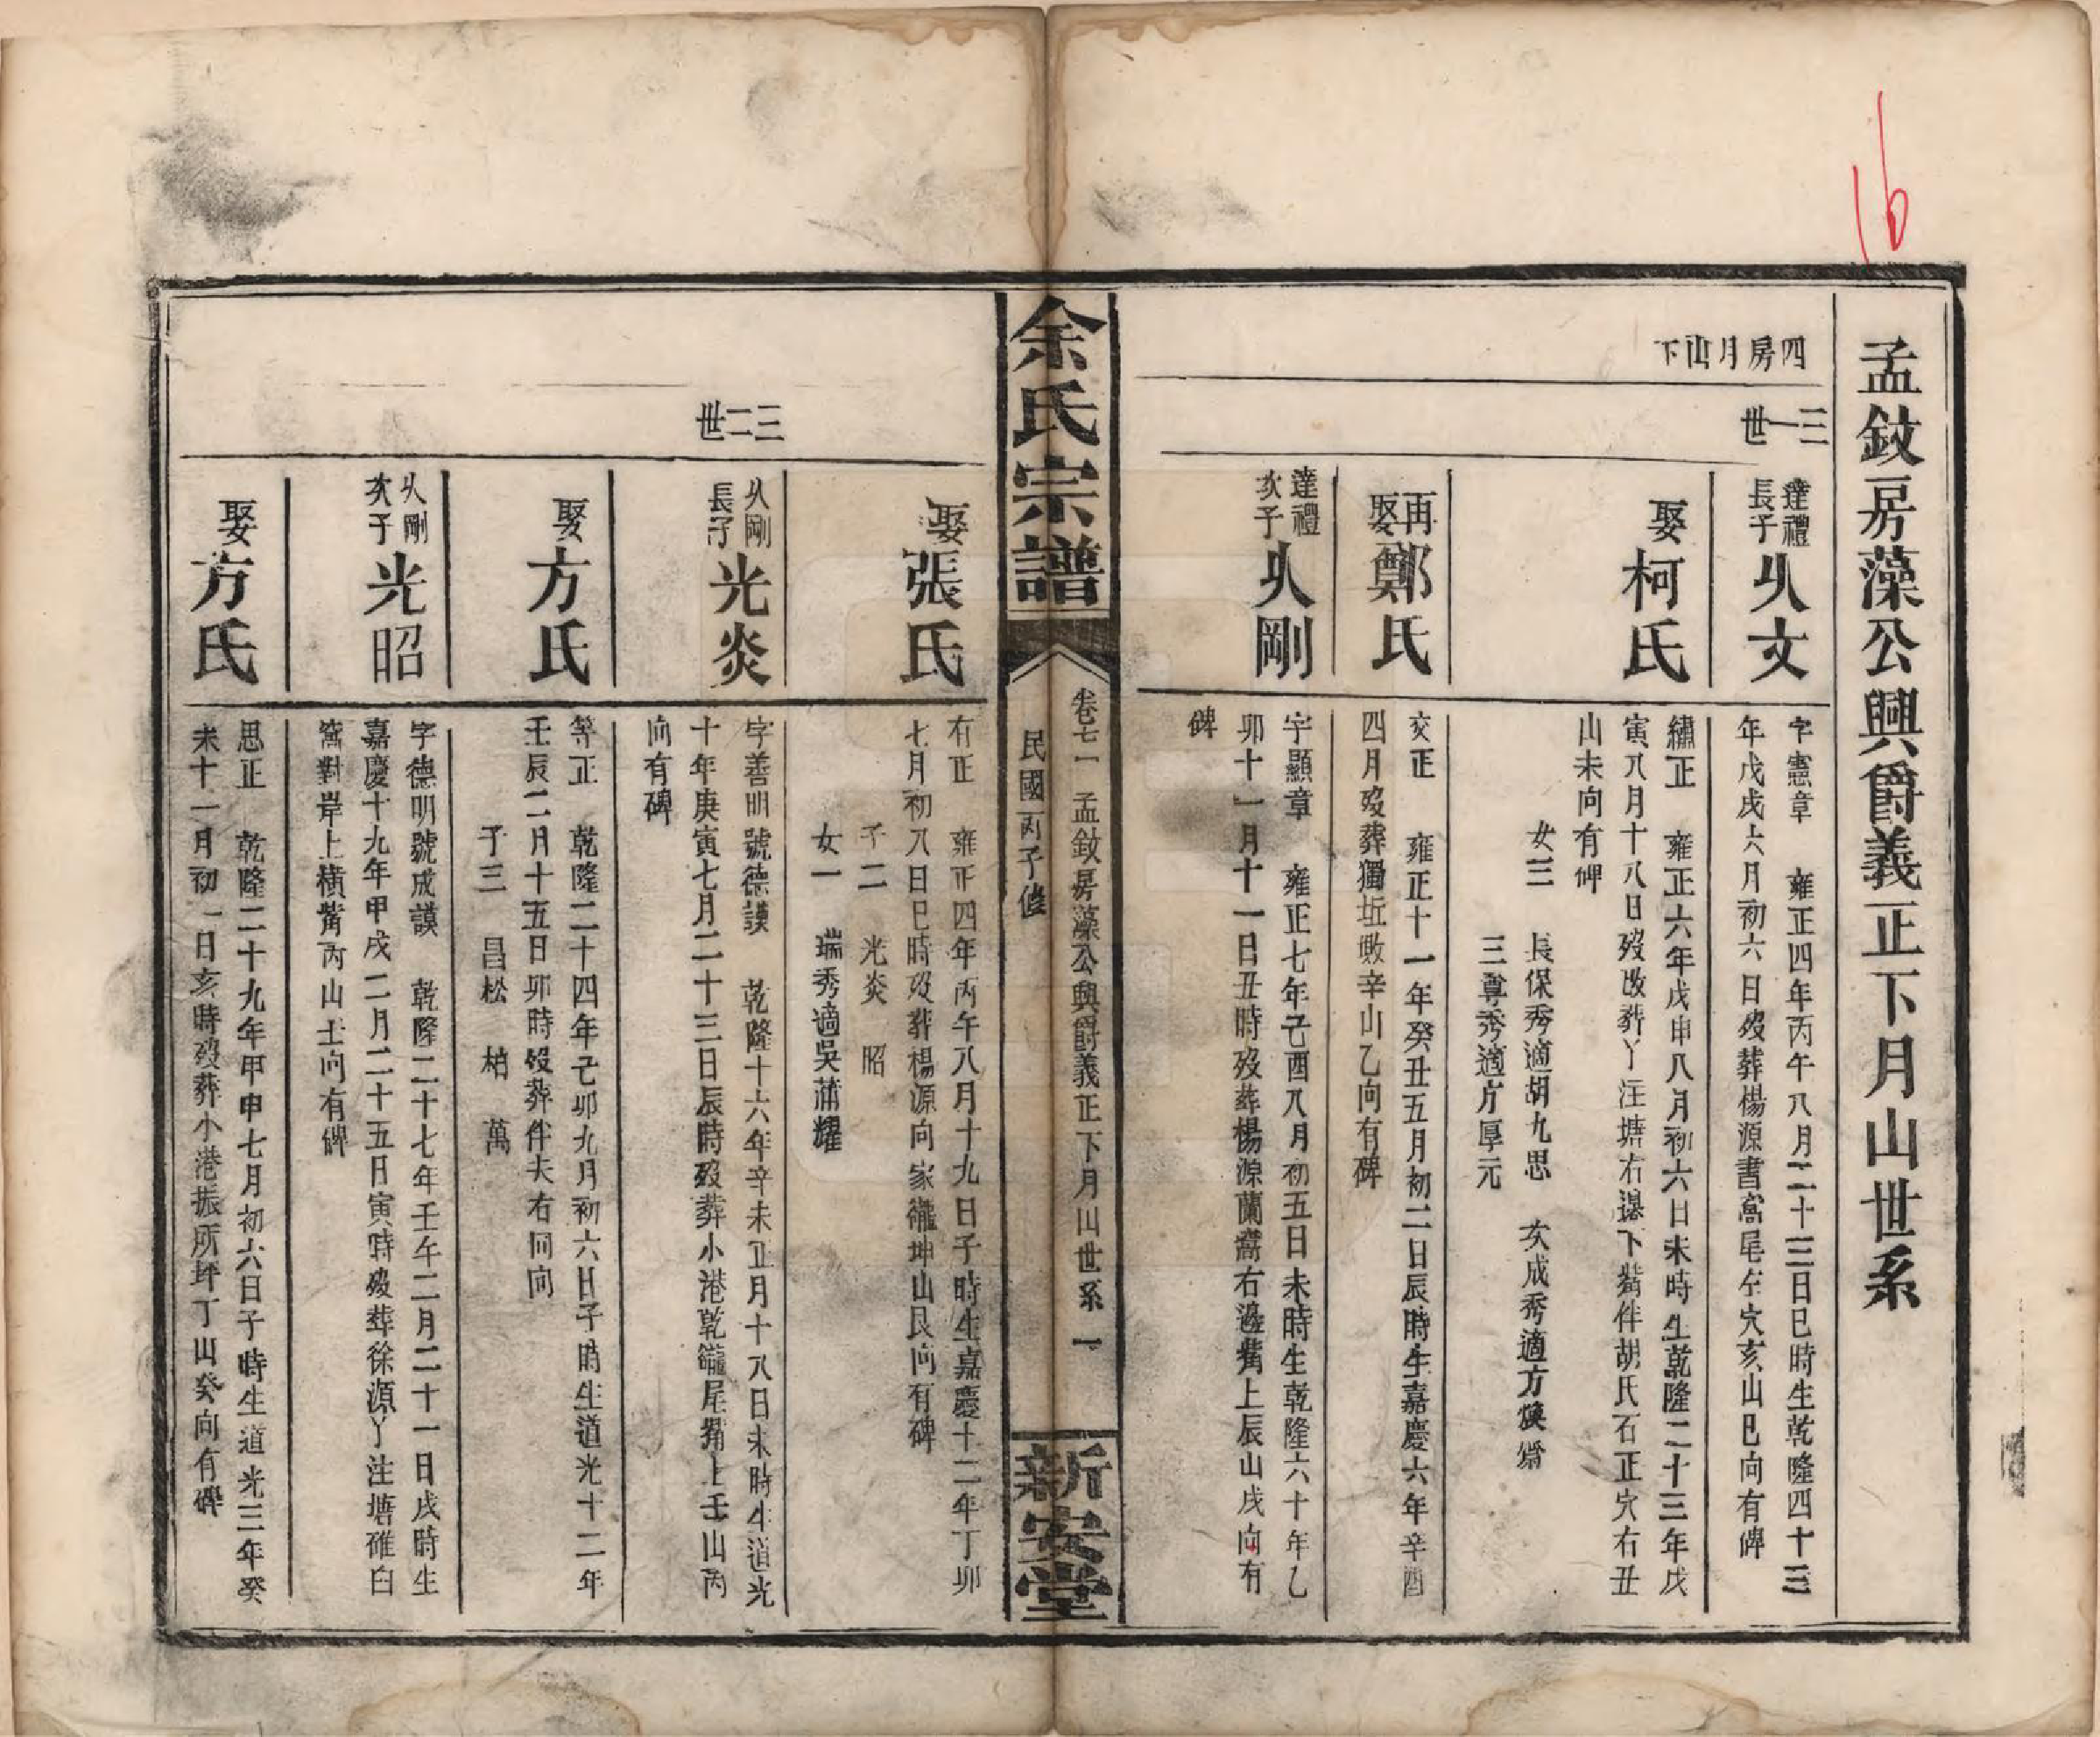 16
孟鈫房藻公興爵義正下月山世系
四房月山下
三一世
達禮長子
㐆文
字憲章　雍正四年丙午八月二十三日巳時生乾隆四十三
年戊戌六月初六日歿葬楊源書窩尾左穴亥山巳向有碑
娶柯氏
繡正　雍正六年戊申八月初六日未時生乾隆二十三年戊
寅八月十八日歿改葬丫汪塘右邊下嘴伴胡氏石正穴右丑
山未向有碑
女三　長保秀適胡九思　次成秀適方煥齋
三尊秀適方厚元
再娶鄭氏
交正　雍正十一年癸丑五月初二日辰時生嘉慶六年辛酉
四月歿葬獨坵墩辛山乙向有碑
達禮次子
㐆剛
字顯章　雍正七年己酉八月初五日未時生乾隆六十年乙
卯十一月十一日丑時歿葬楊源蘭窩右邊嘴上辰山戌向有
碑
余氏宗譜
卷七一　孟鈫房藻公興爵義正下月山世系　一
民國丙子修
新安堂
娶張氏
有正　雍正四年丙午八月十九日子時生嘉慶十二年丁卯
七月初八日巳時歿葬楊源向家龍坤山艮向有碑
子二　光炎　昭
女一　瑞秀適吳蒲耀
三二世
㐆剛長子
光炎
字善明號德謨　乾隆十六年辛未正月十八日未時生道光
十年庚寅七月二十三日辰時歿葬小港乾龍尾嘴上壬山丙
向有碑
娶方氏
等正　乾隆二十四年己卯九月初六日子時生道光十二年
壬辰二月十五日卯時歿葬伴夫右同向
子三　昌松　柏　萬
㐆剛次子
光昭
字德明號成謨　乾隆二十七年壬午二月二十一日戌時生
嘉慶十九年甲戌二月二十五日寅時歿葬徐源丫汪塘碓臼
窩對岸上橫嘴丙山壬向有碑
娶方氏
思正　乾隆二十九年甲申七月初六日子時生道光三年癸
未十一月初一日亥時歿葬小港振所坪丁山癸向有碑